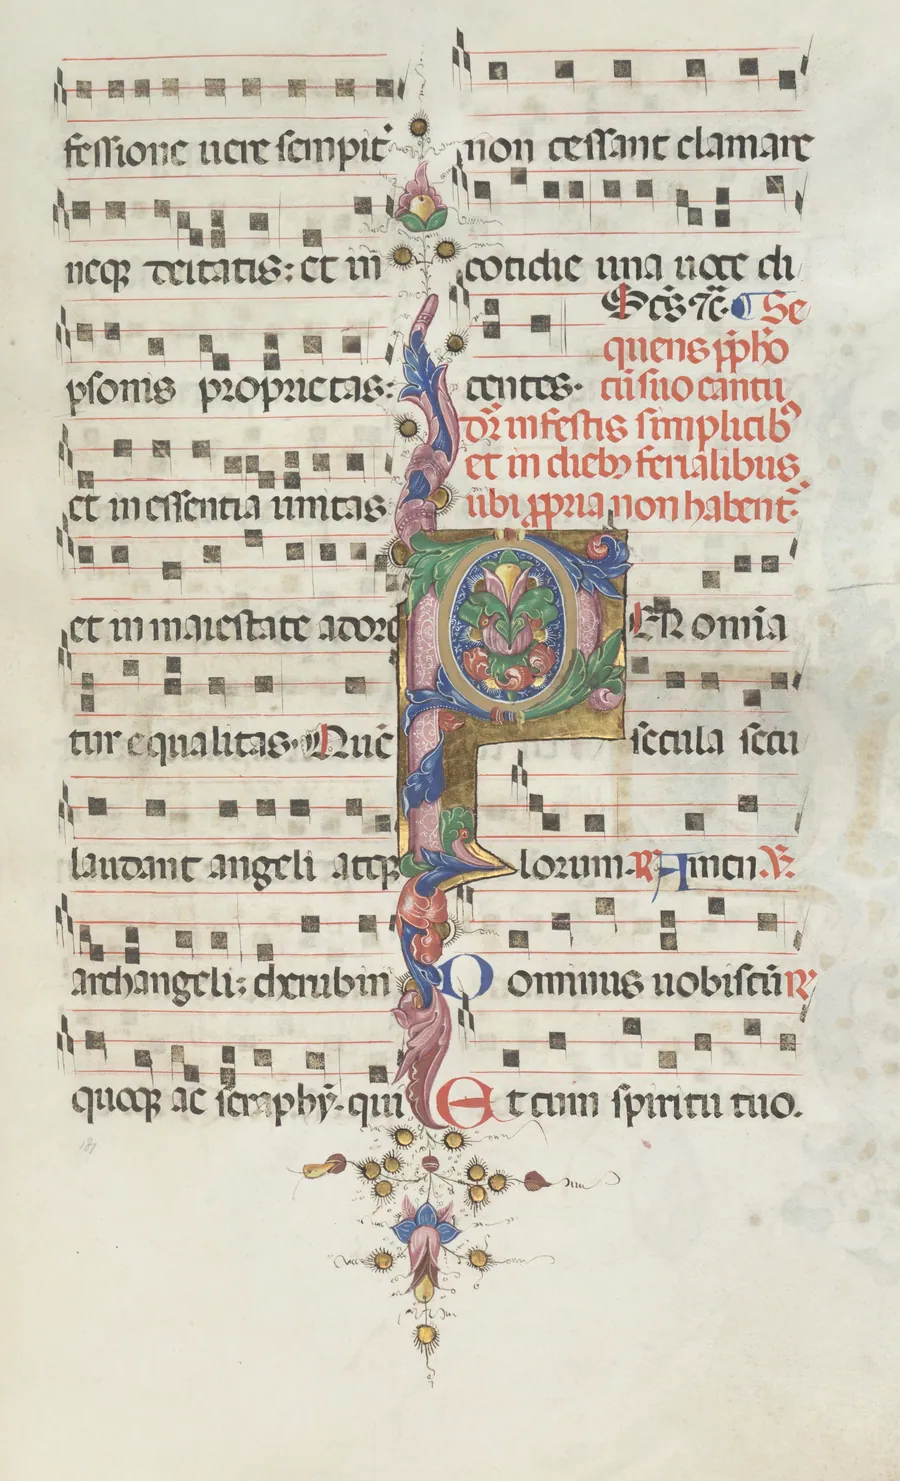 fessione uere sempit̾
neqꝫ deitatis: et in̄
psonis proprietas:
et in essentia unitas
et in maiestate adore
tur equalitas. Quē
laudant angeli atqꝫ
archangeli: cherubin
quoqꝫ ac seraphȳ. qui
187
non cessant clamare
cotidie una uoce di
centes. Sc̄s ⁊c̄. Se
quens p̄pho
cū suo cantu
dr̄ in festis simplicibꝫ
et in diebꝫ ferialibus
ubi ꝓpria non habent̾
PER om̄ia
secula secu
lorum. ℟ Amen. ℣
Dominus uobiscū ℟
Et cum spiritu tuo.